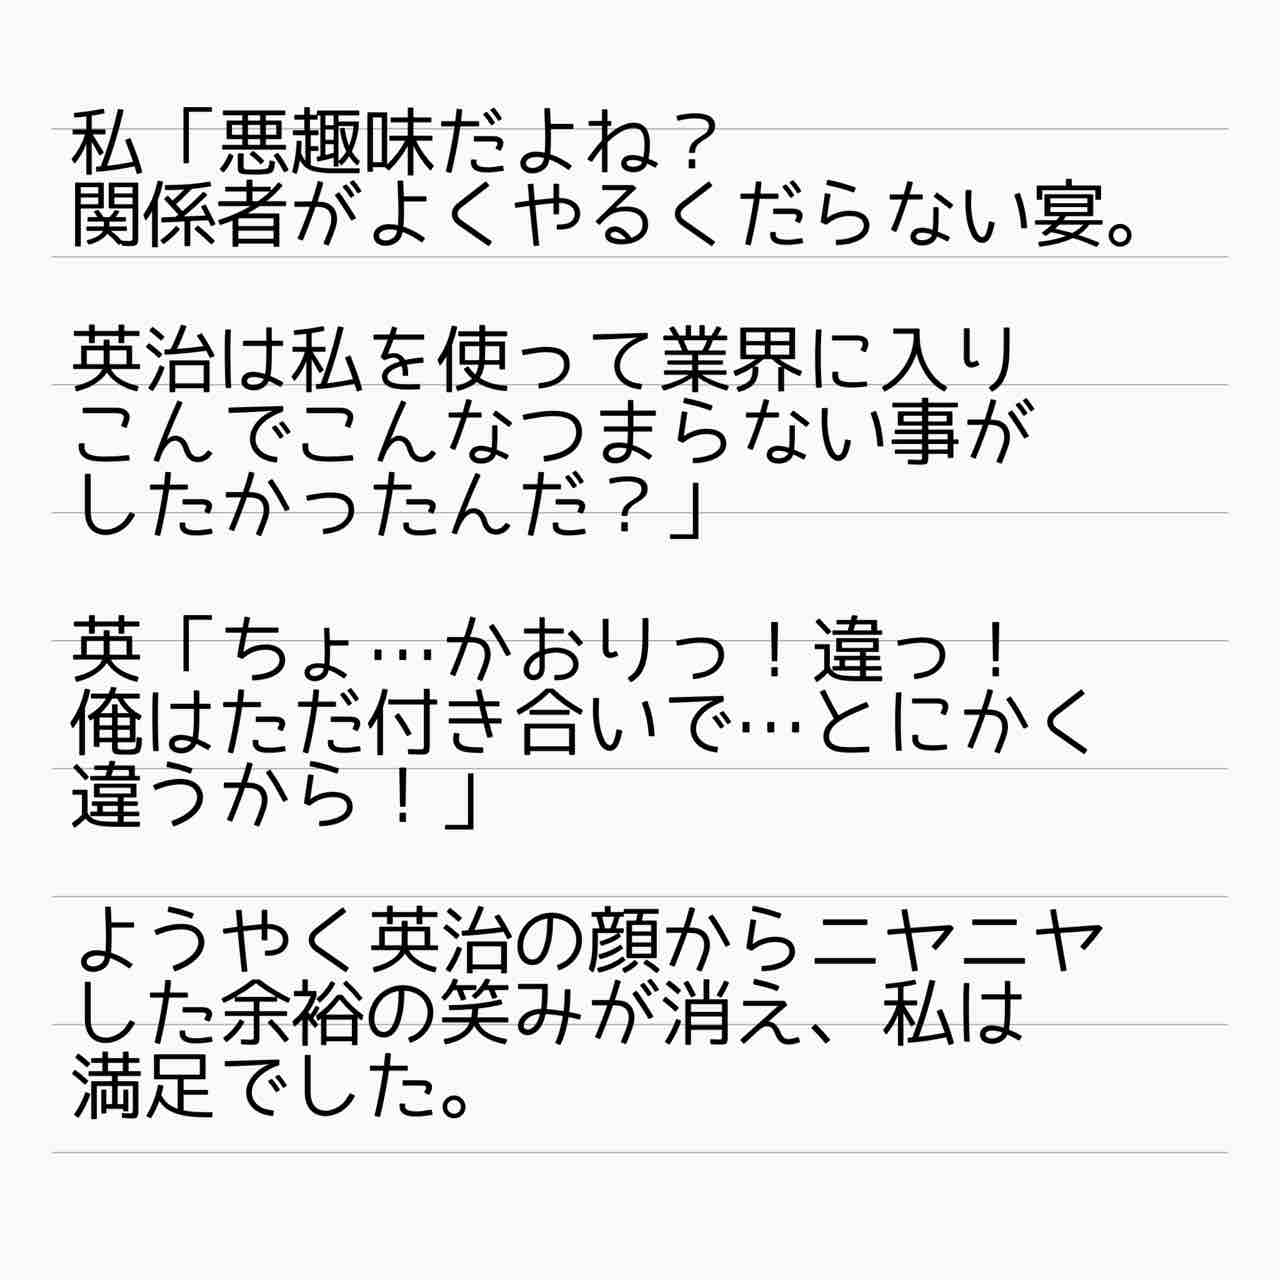 私「悪趣味だよね？
関係者がよくやるくだらない宴。
英治は私を使って業界に入り
こんでこんなつまらない事が
したかったんだ？」
英「ちょ…かおりっ！違っ！
俺はただ付き合いで…とにかく
違うから！」
ようやく英治の顔からニヤニヤ
した余裕の笑みが消え、私は
満足でした。